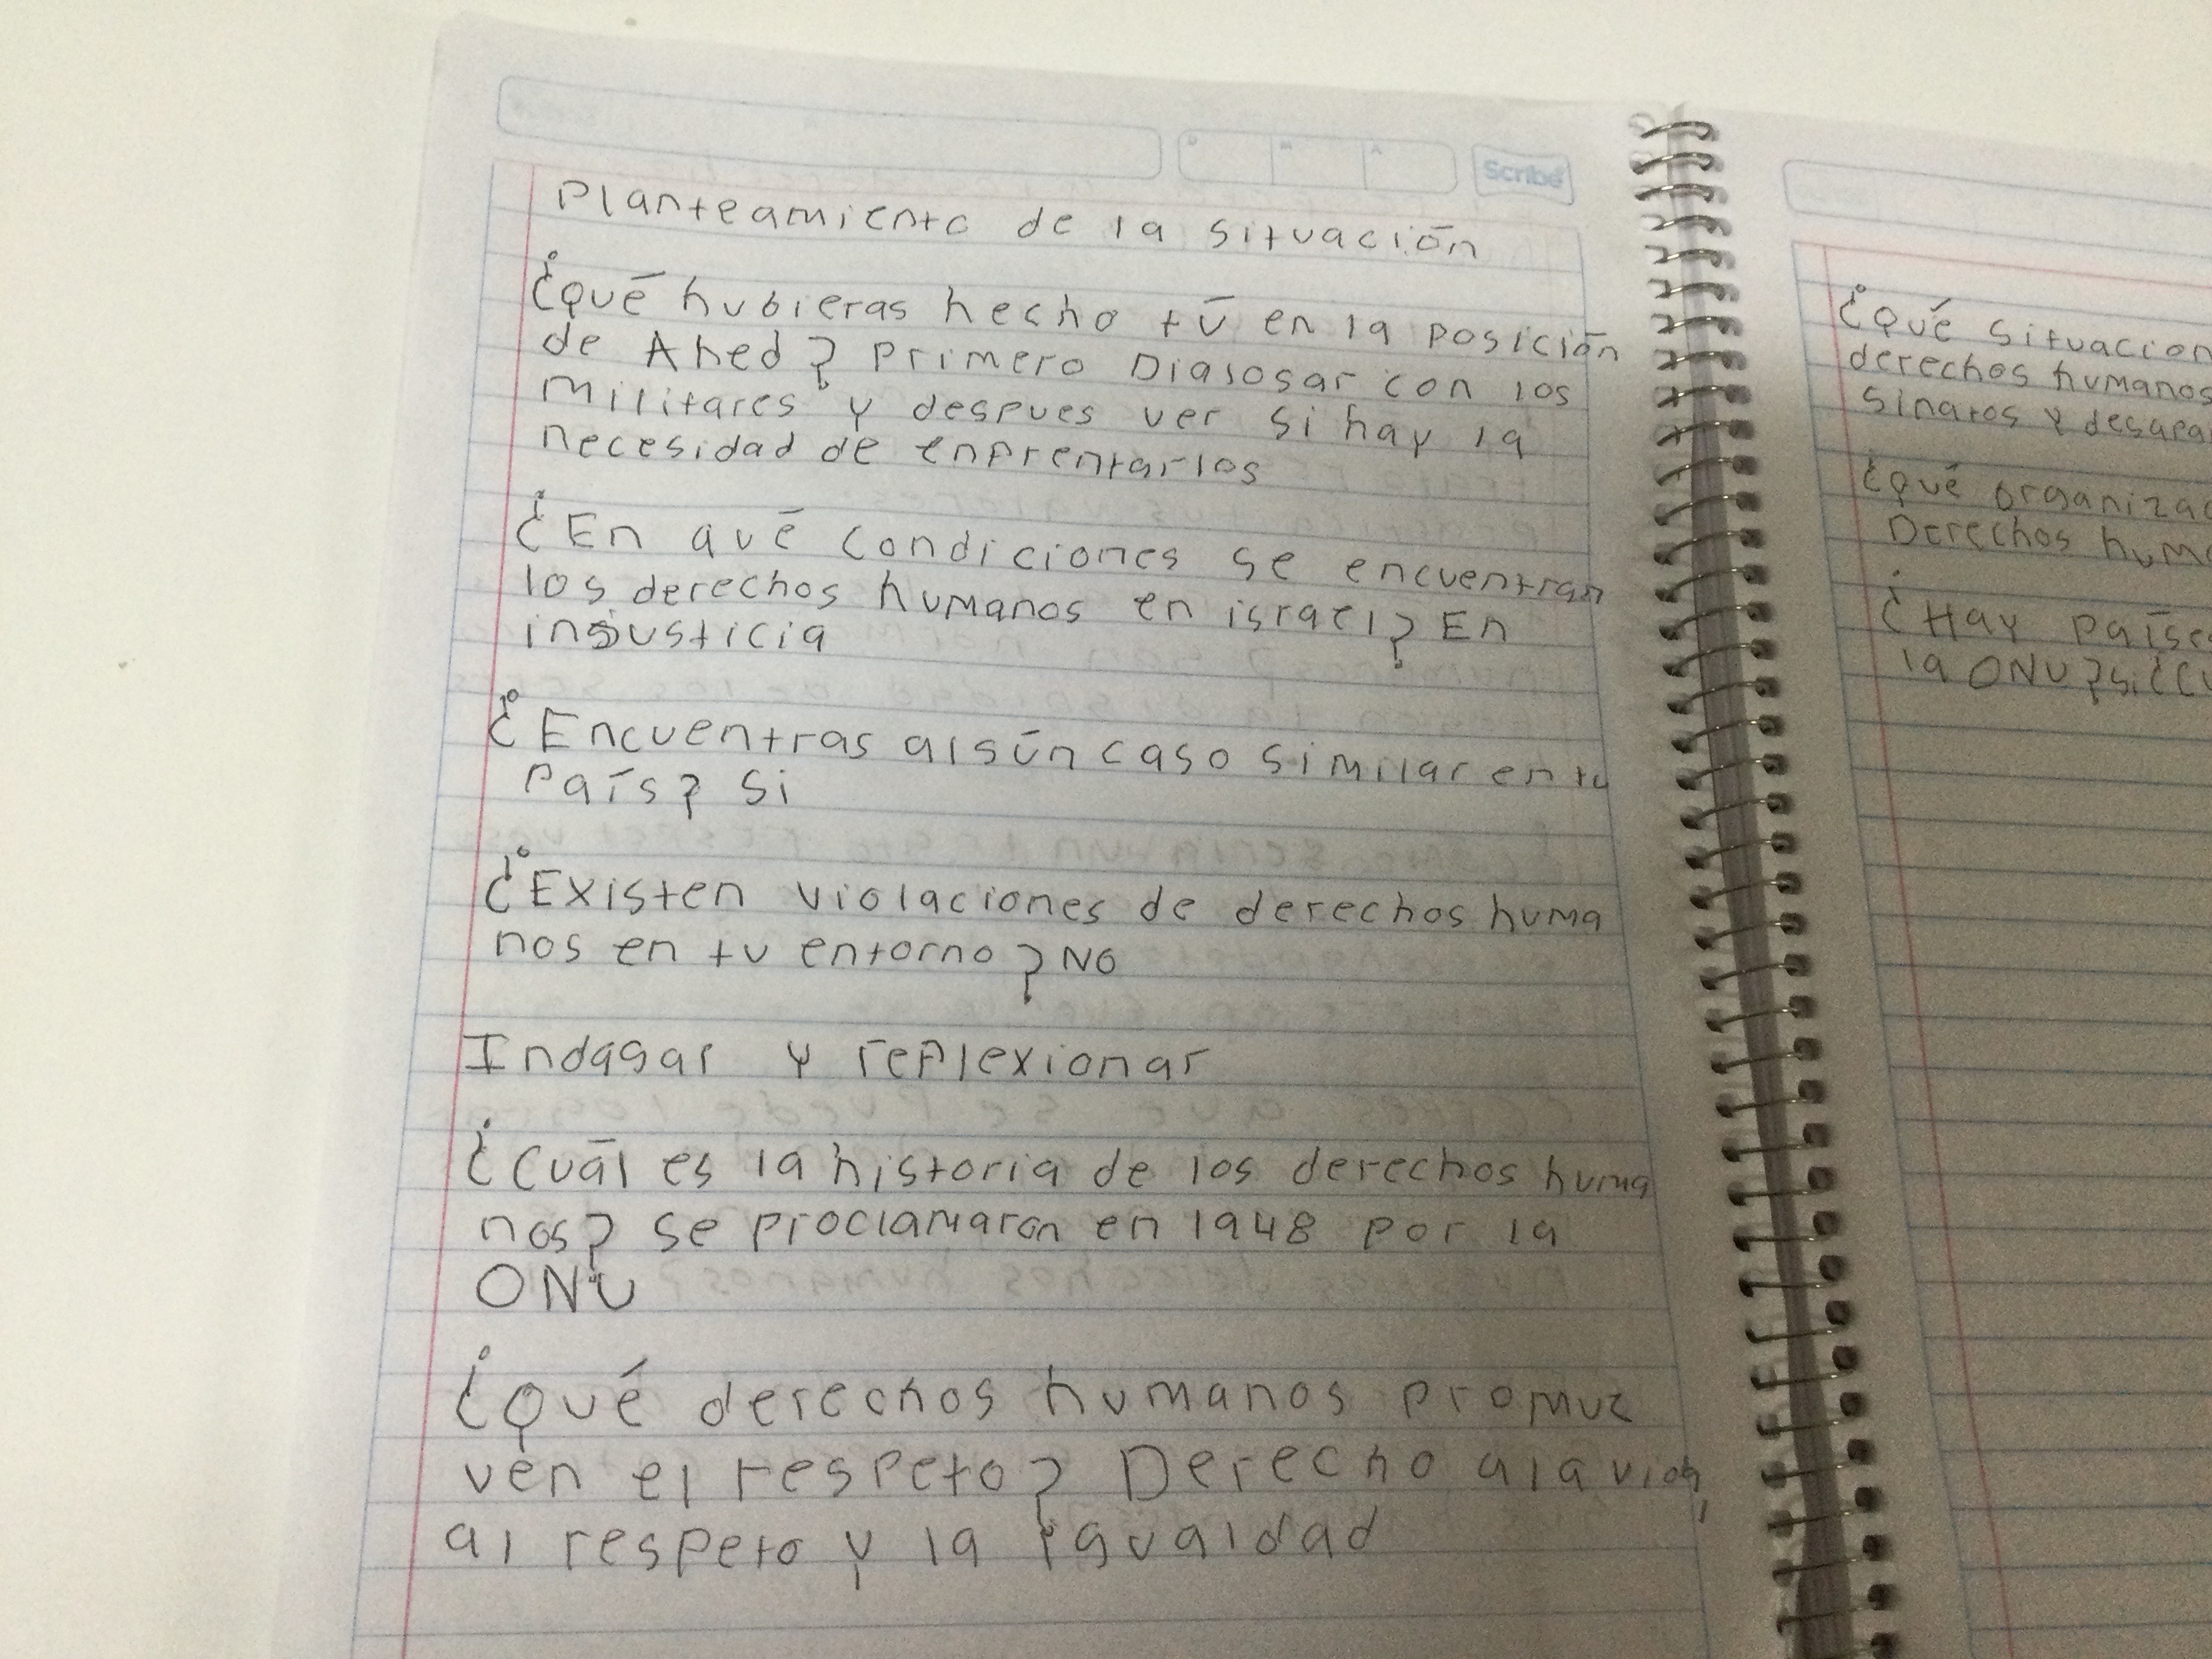 Scribe
Planteamiento de la situación
¿qué hubieras hecho tú en la posición
de Ahed? Primero Dialogar con los
militares y despues ver si hay la
necesidad de enfrentarlos
¿En qué condiciones se encuentran
los derechos humanos en israel? En
injusticia
¿Encuentras algún caso similar en tu
País? Si
¿Existen violaciones de derechos huma
nos en tu entorno? No
Indagar y reflexionar
¿Cuál es la historia de los derechos huma
nos? Se proclamaron en 1948 por la
ONU
¿Qué derechos humanos promue
ven el respeto? Derecho a la vida,
al respeto y la igualdad
¿Qué situacion
derechos humanos
sinatos y desapa
¿qué organizac
Derechos huma
¿Hay países
la ONU? si ¿Cu